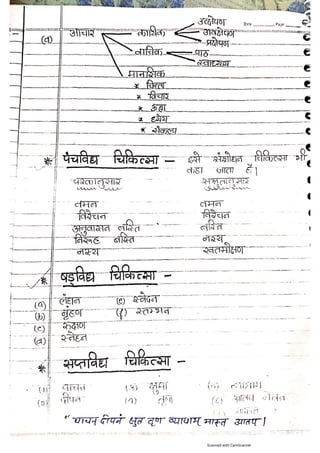 Date Page
(a) आचार कायिक उत्क्षेपण
अवक्षेपण
प्रक्षेपण
वाचिक पाठ
स्वाध्याय
मानसिक
* चिन्ता
* विचार
* ऊहा
* ध्येय
* संकल्प
* पंचविध चिकित्सा - इसे संशोधन चिकित्सा भी
कहा जाता है।
चरकानुसार सुश्रुतानुसार
वमन वमन
विरेचन विरेचन
अनुवासन बस्ति बस्ति
निरूह बस्ति नस्य
नस्य रक्तमोक्षण
* षड्विध चिकित्सा -
(a) लंघन (e) स्वेदन
(b) बृहण (f) स्तम्भन
(c) रुक्षण
(d) स्नेहन
* सप्तविध चिकित्सा -
(1) पाचन (3) क्षुधा (5) व्यायाम
(2) दीपन (4) तृषा (6)
"पाचन दीपनं क्षुत् तृण व्यायाम् मारुत आतप।
Scanned with CamScanner